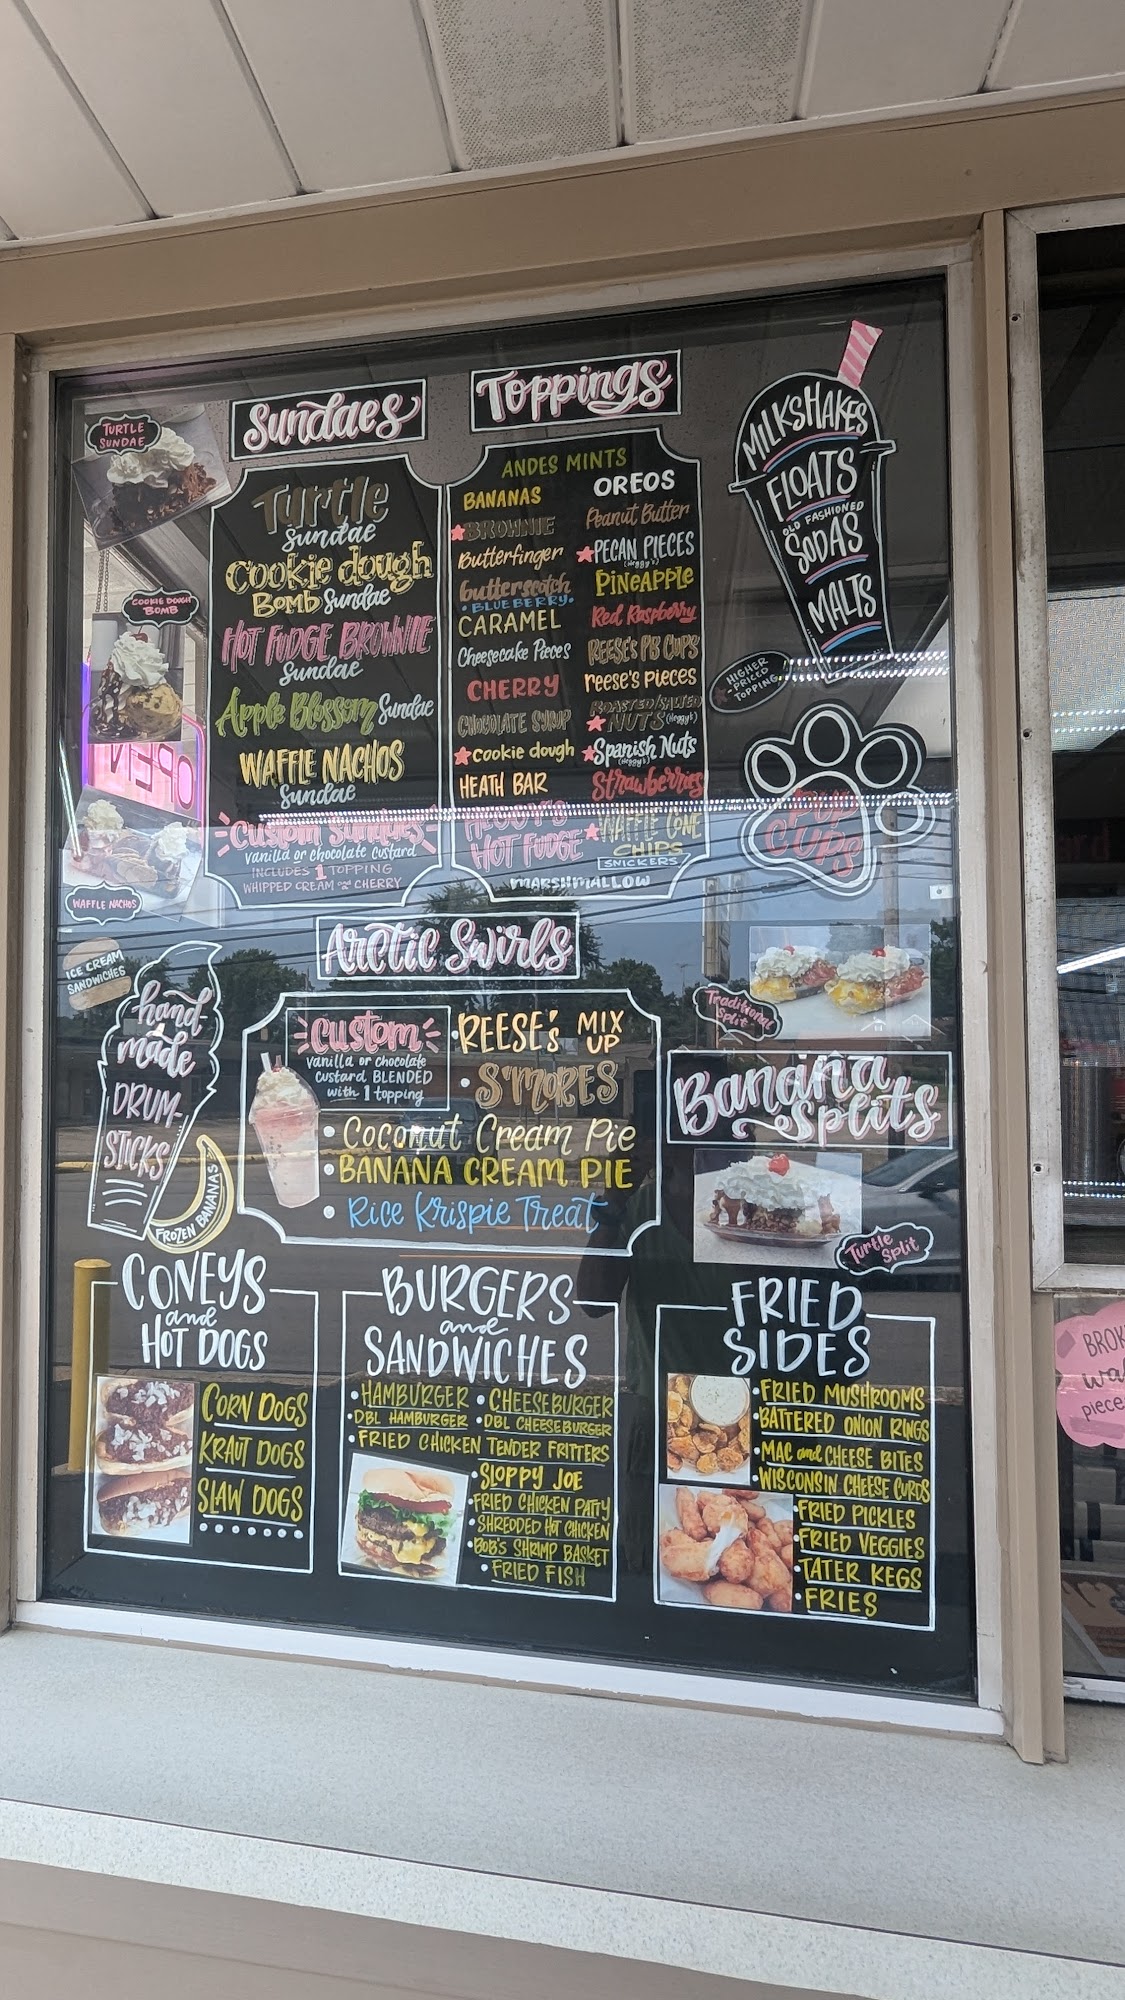 Sundaes
TURTLE
SUNDAE
Turtle
Sundae
Cookie dough
Bomb Sundae
COOKIE DOUGH
BOMB
HOT FUDGE BROWNIE
Sundae
Apple Blossom Sundae
WAFFLE NACHOS
Sundae
OPEN
Custom Sundaes
vanilla or chocolate custard
INCLUDES 1 TOPPING
WHIPPED CREAM and CHERRY
WAFFLE NACHOS
Toppings
ANDES MINTS
BANANAS
BROWNIE
Butterfinger
butterscotch
BLUEBERRY
CARAMEL
Cheesecake Pieces
CHERRY
CHOCOLATE SYRUP
cookie dough
HEATH BAR
HOT FUDGE
MARSHMALLOW
OREOS
Peanut Butter
PECAN PIECES
PINEAPPLE
Red Raspberry
REESE'S PB CUPS
reese's pieces
ROASTED/SALTED
NUTS
Spanish Nuts
Strawberries
WAFFLE CONE
CHIPS
SNICKERS
MILKSHAKES
FLOATS
OLD FASHIONED
SODAS
MALTS
HIGHER
-PRICED
TOPPING
PUP
CUPS
ICE CREAM
SANDWICHES
hand-
made
DRUM-
STICKS
FROZEN BANANAS
Arctic Swirls
Custom
vanilla or chocolate
custard BLENDED
with 1 topping
REESE'S MIX
UP
• S'MORES
• Coconut Cream Pie
• BANANA CREAM PIE
• Rice Krispie Treat
Traditional
Split
Banana
Splits
Turtle
Split
CONEYS
and
HOT DOGS
CORN DOGS
KRAUT DOGS
SLAW DOGS
BURGERS
and
SANDWICHES
• HAMBURGER • CHEESEBURGER
• DBL HAMBURGER • DBL CHEESEBURGER
• FRIED CHICKEN TENDER FRITTERS
• SLOPPY JOE
• FRIED CHICKEN PATTY
• SHREDDED HOT CHICKEN
• BOB'S SHRIMP BASKET
• FRIED FISH
FRIED
SIDES
• FRIED MUSHROOMS
• BATTERED ONION RINGS
• MAC and CHEESE BITES
• WISCONSIN CHEESE CURDS
• FRIED PICKLES
• FRIED VEGGIES
• TATER KEGS
• FRIES